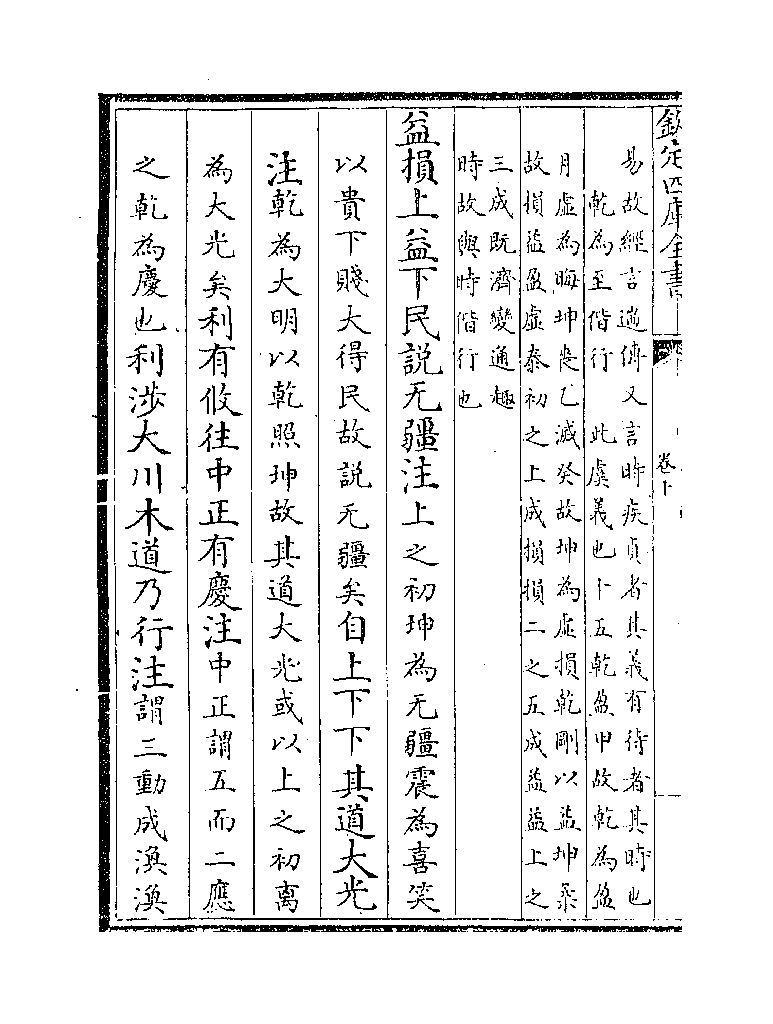 欽定四庫全書
卷下
易故經言遄傳又言時疾貞者其義有待者其時也
乾為至偕行　此虞義也十五乾盈甲故乾為盈
月虛為晦坤喪乙滅癸故坤為虛損乾剛以益坤柔
故損益盈虛泰初之上成損損二之五成益益上之
三成既濟變通趣
時故與時偕行也
益損上益下民說无疆注上之初坤為无疆震為喜笑
以貴下賤大得民故說无疆矣自上下下其道大光
注乾為大明以乾照坤故其道大光或以上之初離
為大光矣利有攸往中正有慶注中正謂五而二應
之乾為慶也利涉大川木道乃行注謂三動成渙渙